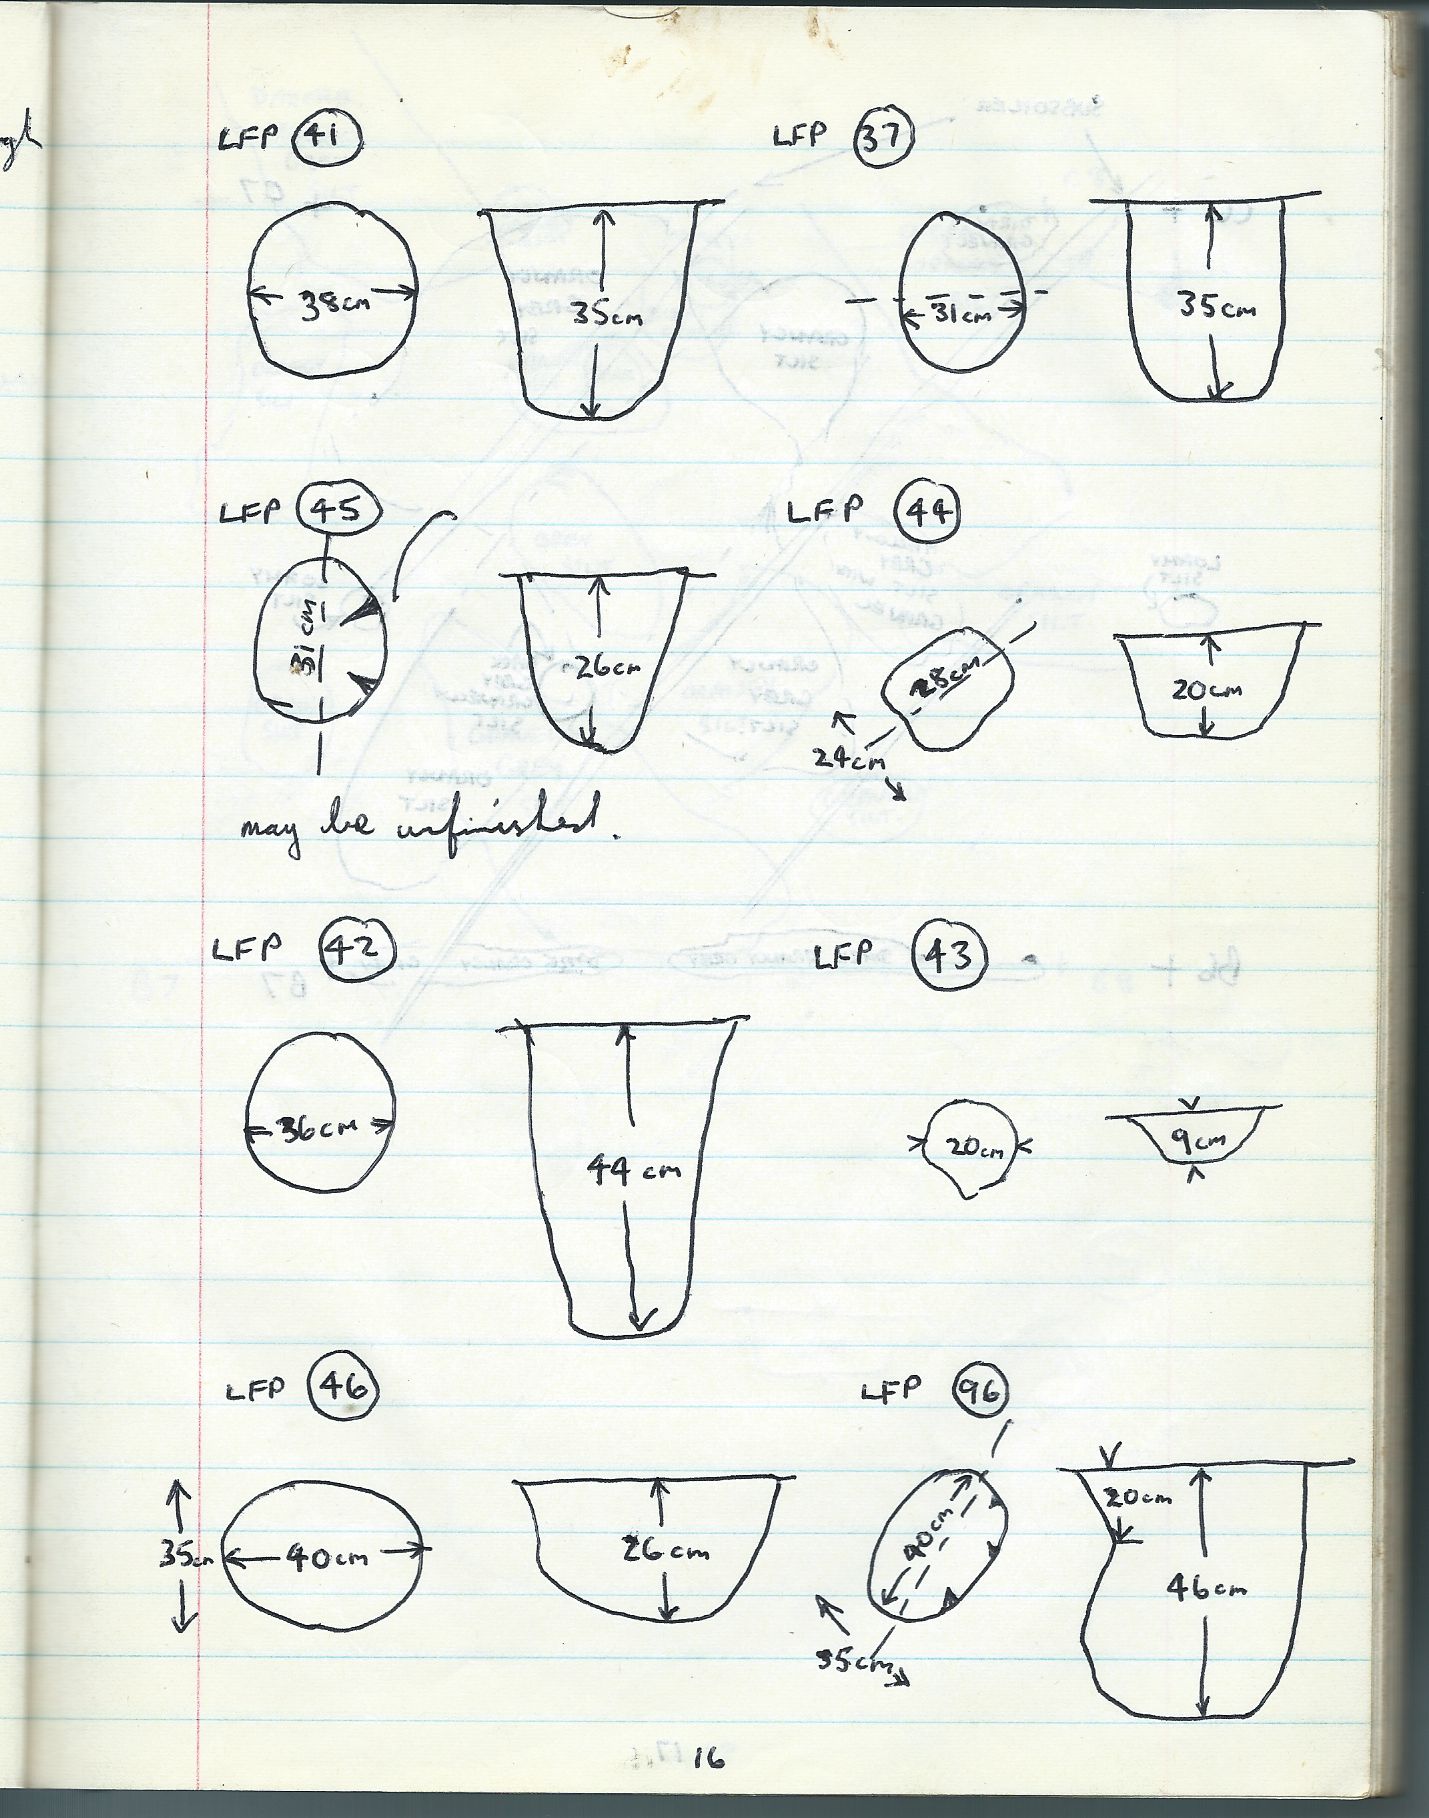 gh
LFP 41
LFP 37
38cm
35cm
31cm
35cm
LFP 45
LFP 44
31cm
26cm
28cm
20cm
24cm
may be unfinished.
LFP 42
LFP 43
36cm
44 cm
20cm
9cm
LFP 46
LFP 96
35cm
40cm
26cm
40cm
35cm
20cm
46cm
16